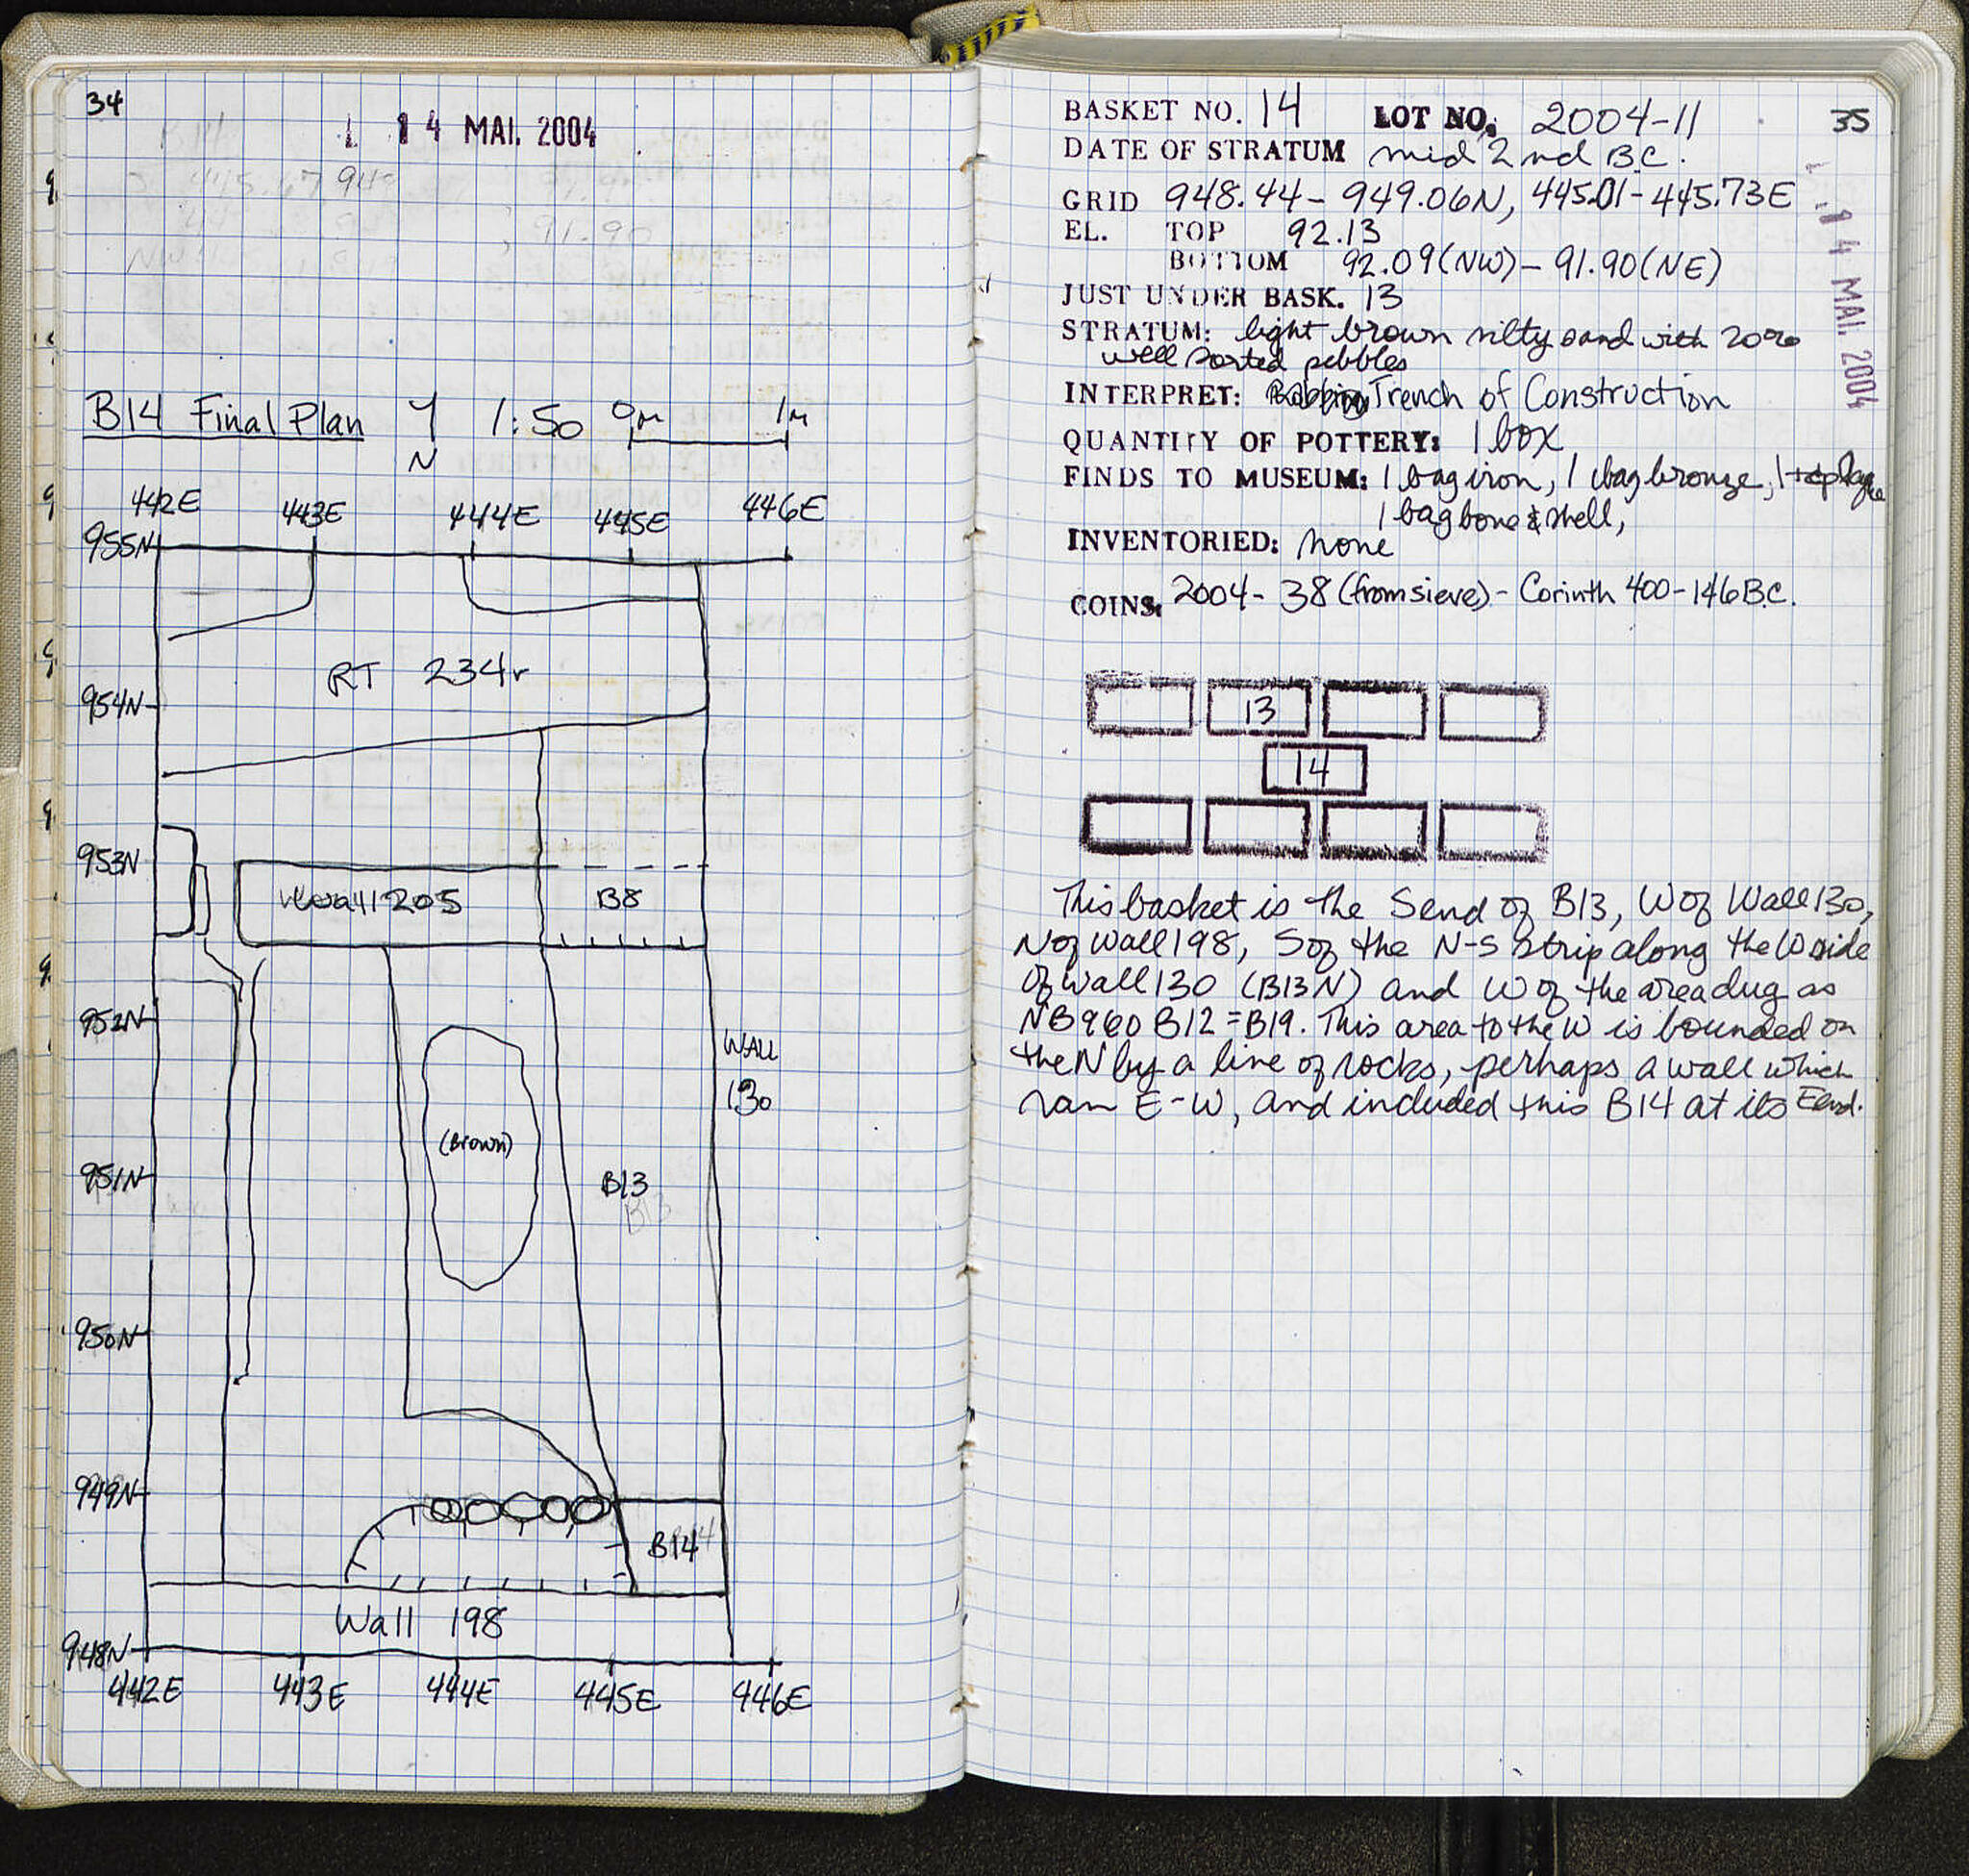 34
14 MAI. 2004
B14 Final Plan N 1:50 0m 1m
442E 443E 444E 445E 446E
955N
RT 234r
954N
953N
Wall 205 B8
952N
WALL
130
(Brown)
951N
B13
B13
950N
949N
B14
Wall 198
948N
442E 443E 444E 445E 446E
BASKET NO. 14 LOT NO. 2004-11 35
DATE OF STRATUM mid 2nd BC.
GRID 948.44 - 949.06N, 445.01 - 445.73E
EL. TOP 92.13
BOTTOM 92.09(NW) - 91.90(NE)
14 MAI. 2004
JUST UNDER BASK. 13
STRATUM: light brown silty sand with 20%
well sorted pebbles
INTERPRET: Trench of Construction
QUANTITY OF POTTERY: 1 box
FINDS TO MUSEUM: 1 bag iron, 1 bag bronze, 1
1 bag bone & shell,
INVENTORIED: none
COINS: 2004- 38 (from sieve) - Corinth 400-146 B.C.
13
14
This basket is the S end of B13, W of Wall 130,
N of Wall 198, S of the N-S strip along the W side
of Wall 130 (B13N) and W of the area dug as
NB960 B12 = B19. This area to the W is bounded on
the N by a line of rocks, perhaps a wall which
ran E-W, and included this B14 at its E end.